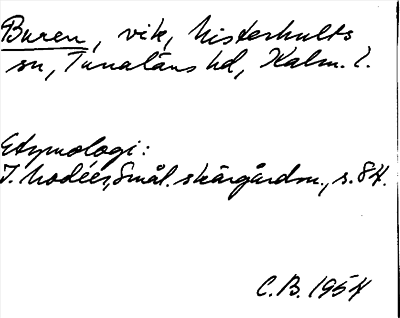 Buren, vik, Misterhults
sn, Tunaläns hd, Kalm. l.
Etymologi:
I. Modéer, Smål. skärgårdsn., s. 84.
C.B. 1954